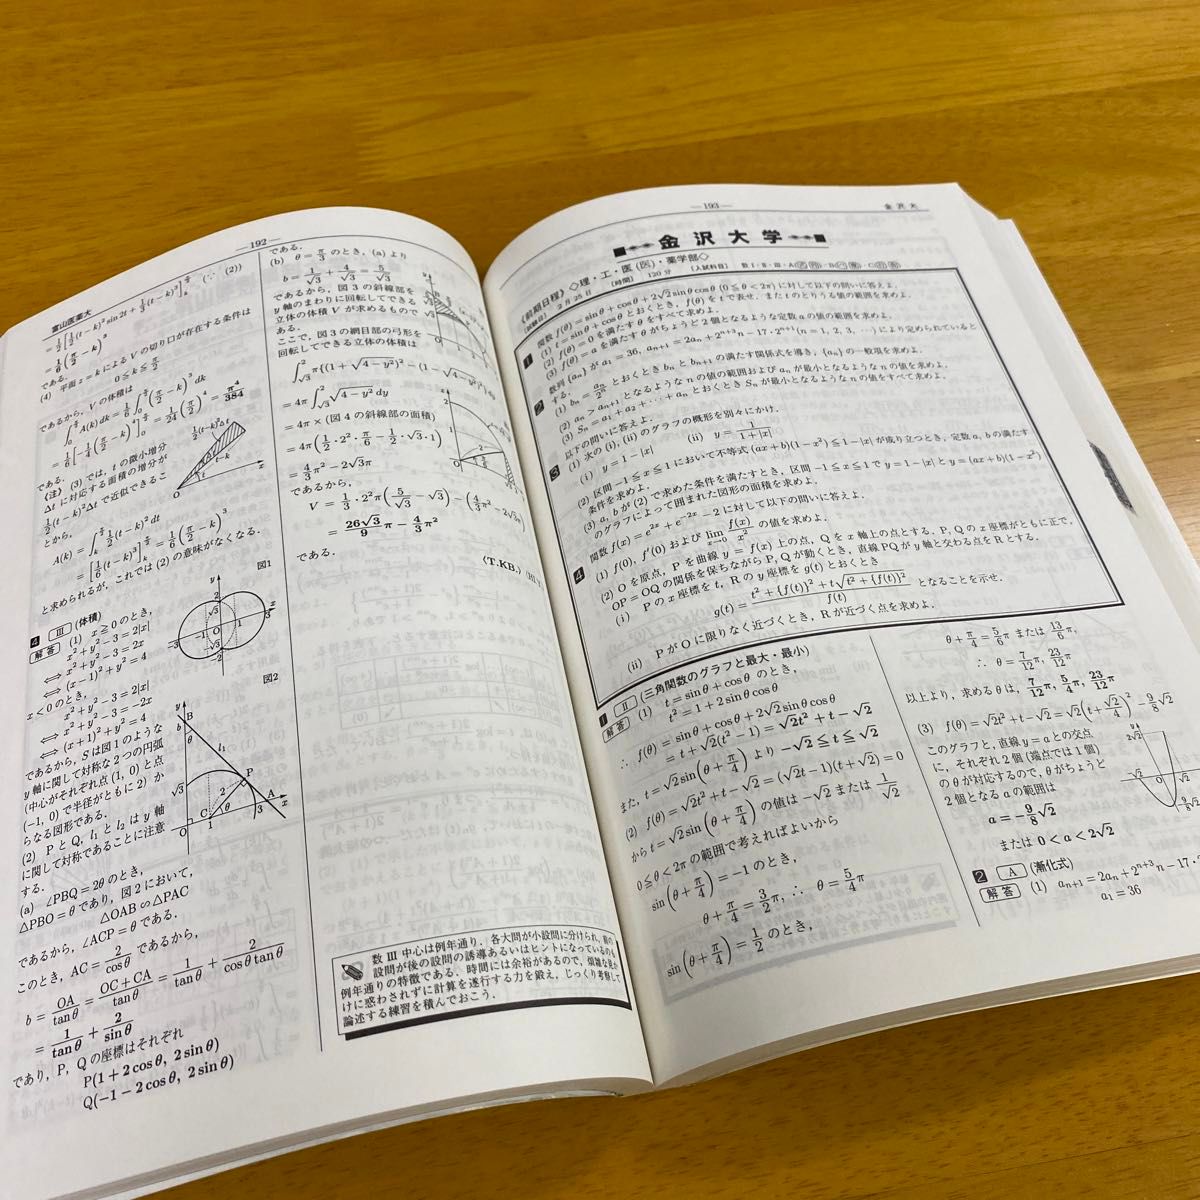 —192—
富山医薬大
である.
(4) 平面 z=k による V の切り口が存在する条件は
0≦k≦π/2
であるから, V の体積は
である.
(注) (3) では, t の微小増分
Δt に対応する面積の増分が
1/2(t-k)²Δt で近似できるこ
とから,
A(k)=∫1/2(t-k)²dt
と求められるが, これでは (2) の意味がなくなる.
図1
4 III (体積)
解答 (1) x≧0 のとき,
x²+y²-3=2|x|
⇔ x²+y²-3=2x
⇔ (x-1)²+y²=4
x<0 のとき,
x²+y²-3=2|x|
⇔ x²+y²-3=-2x
⇔ (x+1)²+y²=4
であるから, S は図1のような
y 軸に関して対称な2つの円弧
(中心がそれぞれ点(1, 0) と点
(-1, 0) で半径がともに 2) か
らなる図形である.
図2
(2) P と Q, l₁ と l₂ は y 軸
に関して対称であることに注意
する.
(a) ∠PBQ=2θ のとき,
△PBO=θ であり, 図2において,
△OAB∽△PAC
であるから, ∠ACP=θ である.
このとき, AC=2/cosθ であるから,
b=OA/tanθ=(OC+CA)/tanθ=1/tanθ+2/(cosθtanθ)
=1/tanθ+2/sinθ
であり, P, Q の座標はそれぞれ
P(1+2cosθ, 2sinθ)
Q(-1-2cosθ, 2sinθ)
である.
(b) θ=π/3 のとき, (a) より
b=1/√3+4/√3=5/√3
であるから, 図3の斜線部を
y 軸のまわりに回転してできる
立体の体積 V が求めるもので
ある.
ここで, 図3の網目部の弓形を
回転してできる立体の体積は
=4π∫√(4-y²)dy
=4π×(図4の斜線部の面積)
=4π(1/2·2²·π/6-1/2·√3·1)
=4/3π²-2√3π
であるから,
V=1/3·2²π(5/√3-√3)-(4/3π²-2√3π)
=26√3/9π-4/3π²
である.
数 III 中心は例年通り. 各大問が小設問に分けられ, 前の
設問が後の設問の誘導あるいはヒントになっているのも
例年通りの特徴である. 時間には余裕があるので, 煩雑な見か
けに惑わされずに計算を遂行する力を鍛え, じっくり考察して
論述する練習を積んでおこう.
—193—
金沢大
金沢大学
《前期日程》◇理・工・医(医)・薬学部◇
〔試験日〕 2月25日 〔時間〕 120分 〔入試科目〕
1 関数 f(θ)=sinθ+cosθ+2√2sinθcosθ (0≦θ<2π) に対して以下の問いに答えよ.
(1) t=sinθ+cosθ とおくとき, f(θ) を t で表せ. また t のとりうる値の範囲を求めよ.
(2) f(θ)=0 を満たす θ をすべて求めよ.
(3) f(θ)=a を満たす θ がちょうど2個となるような定数 a の値の範囲を求めよ.
2 数列 {aₙ} が a₁=36, aₙ₊₁=2aₙ+2ⁿ⁺³n-17·2ⁿ⁺¹(n=1, 2, 3, …) により定められているとき
(1) bₙ=aₙ/2ⁿ とおくとき bₙ と bₙ₊₁ の満たす関係式を導き, {aₙ} の一般項を求めよ.
(2) aₙ>aₙ₊₁ となるような n の値の範囲および aₙ が最小となるような n の値を求めよ.
(3) Sₙ=a₁+a₂+…+aₙ とおくとき Sₙ が最小となるような n の値をすべて求めよ.
3 以下の問いに答えよ.
(1) 次の (i), (ii) のグラフの概形を別々にかけ.
(i) y=1-|x| (ii) y=1/(1+|x|)
(2) 区間 -1≦x≦1 において不等式 (ax+b)(1-x²)≦1-|x| が成り立つとき, 定数 a, b の満たす
条件を求めよ.
(3) a, b が (2) で求めた条件を満たすとき, 区間 -1≦x≦1 で y=1-|x| と y=(ax+b)(1-x²)
のグラフによって囲まれた図形の面積を求めよ.
4 関数 f(x)=e²ˣ+e⁻²ˣ-2 に対して以下の問いに答えよ.
(1) f(0), f'(0) および lim x→0 f(x)/x² の値を求めよ.
(2) O を原点, P を曲線 y=f(x) 上の点, Q を x 軸上の点とする. P, Q の x 座標がともに正で,
OP=OQ の関係を保ちながら P, Q が動くとき, 直線 PQ が y 軸と交わる点を R とする.
(i) P の x 座標を t, R の y 座標を g(t) とおくとき
g(t)=(t²+{f(t)}²+t√(t²+{f(t)}²))/f(t) となることを示せ.
(ii) P が O に限りなく近づくとき, R が近づく点を求めよ.
1 II (三角関数のグラフと最大・最小)
解答 (1) t=sinθ+cosθ のとき,
t²=1+2sinθcosθ
∴ f(θ)=sinθ+cosθ+2√2sinθcosθ
=t+√2(t²-1)=√2t²+t-√2
また, t=√2sin(θ+π/4) より -√2≦t≦√2
(2) f(θ)=√2t²+t-√2=(√2t-1)(t+√2)=0
から t=√2sin(θ+π/4) の値は -√2 または 1/√2
0≦θ<2π の範囲で考えればよいから
sin(θ+π/4)=-1 のとき,
θ+π/4=3/2π, ∴ θ=5/4π
sin(θ+π/4)=1/2 のとき,
θ+π/4=5/6π または 13/6π,
∴ θ=7/12π, 23/12π
以上より, 求める θ は, 7/12π, 5/4π, 23/12π
(3) f(θ)=√2t²+t-√2=√2(t+√2/4)²-9/8√2
このグラフと, 直線 y=a との交点
に, それぞれ2個 (端点では1個)
の θ が対応するので, θ がちょうど
2個となる a の範囲は
a=-9/8√2
または 0<a<2√2
2 A (漸化式)
解答 (1) aₙ₊₁=2aₙ+2ⁿ⁺³n-17·
a₁=36